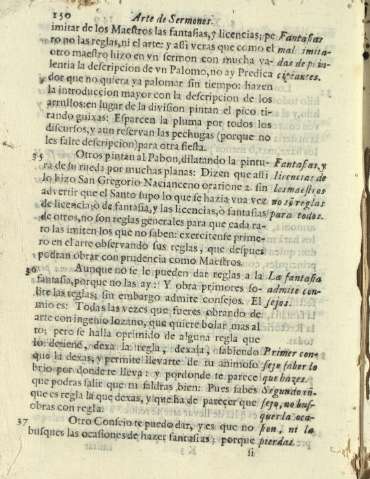 150 Arte de Sermones.
imitar de los Maestros las fantasias, y licencias; pe Fantasias
ro no las reglas, ni el arte: y assi veras que como el mal imita-
otro maestro hizo en vn sermon con mucha va- das de
lentia la descripcion de vn Palomo, no ay Predica
dor que no quiera ya palomar sin tiempo: hazen
la introduccion mayor con la descripcion de los
arrullos: en lugar de la division pintan el pico ti-
rando guixas: Esparcen la pluma por todos los
discursos, y aun reservan las pechugas (porque no
les falte descripcion) para otra fiesta.
35 Otros pintan al Pabon, dilatando la pintu- Fantasias, y
ra de su rueda por muchas planas: Dizen que assi licencias de
lo hizo San Gregorio Nacianceno oratione 2. sin los maestros
advertir que el Santo supo lo que se hazia vna vez no son reglas
de licencia, ò de fantasia, y las licencias, ò fantasias para todos.
de otros, no son reglas generales para que cada ra-
ro las imiten los que no saben: exercitente prime-
ro en el arte observando sus reglas, que despues
podran obrar con prudencia como Maestros.
36 Aunque no se le pueden dar reglas à la La fantasia
fantasia, porque no las ay: Y obra primores so- admite con-
bre las reglas; sin embargo admite consejos. El sejos.
mio es: Todas las vezes que fueres obrando de
arte con ingenio lozano, que quiere bolar mas al
to; pero se halla oprimido de alguna regla que
lo detiene, dexa la regla, dexala, sabiendo Primer con-
que la dexas, y permite llevarte de tu animoso sejo saber lo
brio por donde te lleva: y pordonde te parece que hazes.
que podras salir que ni saldras bien: Pues sabes Segundo
que es regla la que dexas, y que ha de parecer que sejo, no bus-
obras con regla. quer la oca-
37 Otro Consejo te puedo dar, y es que no sion, ni la
busques las ocasiones de hazer fantasias; porque pierdas.
si